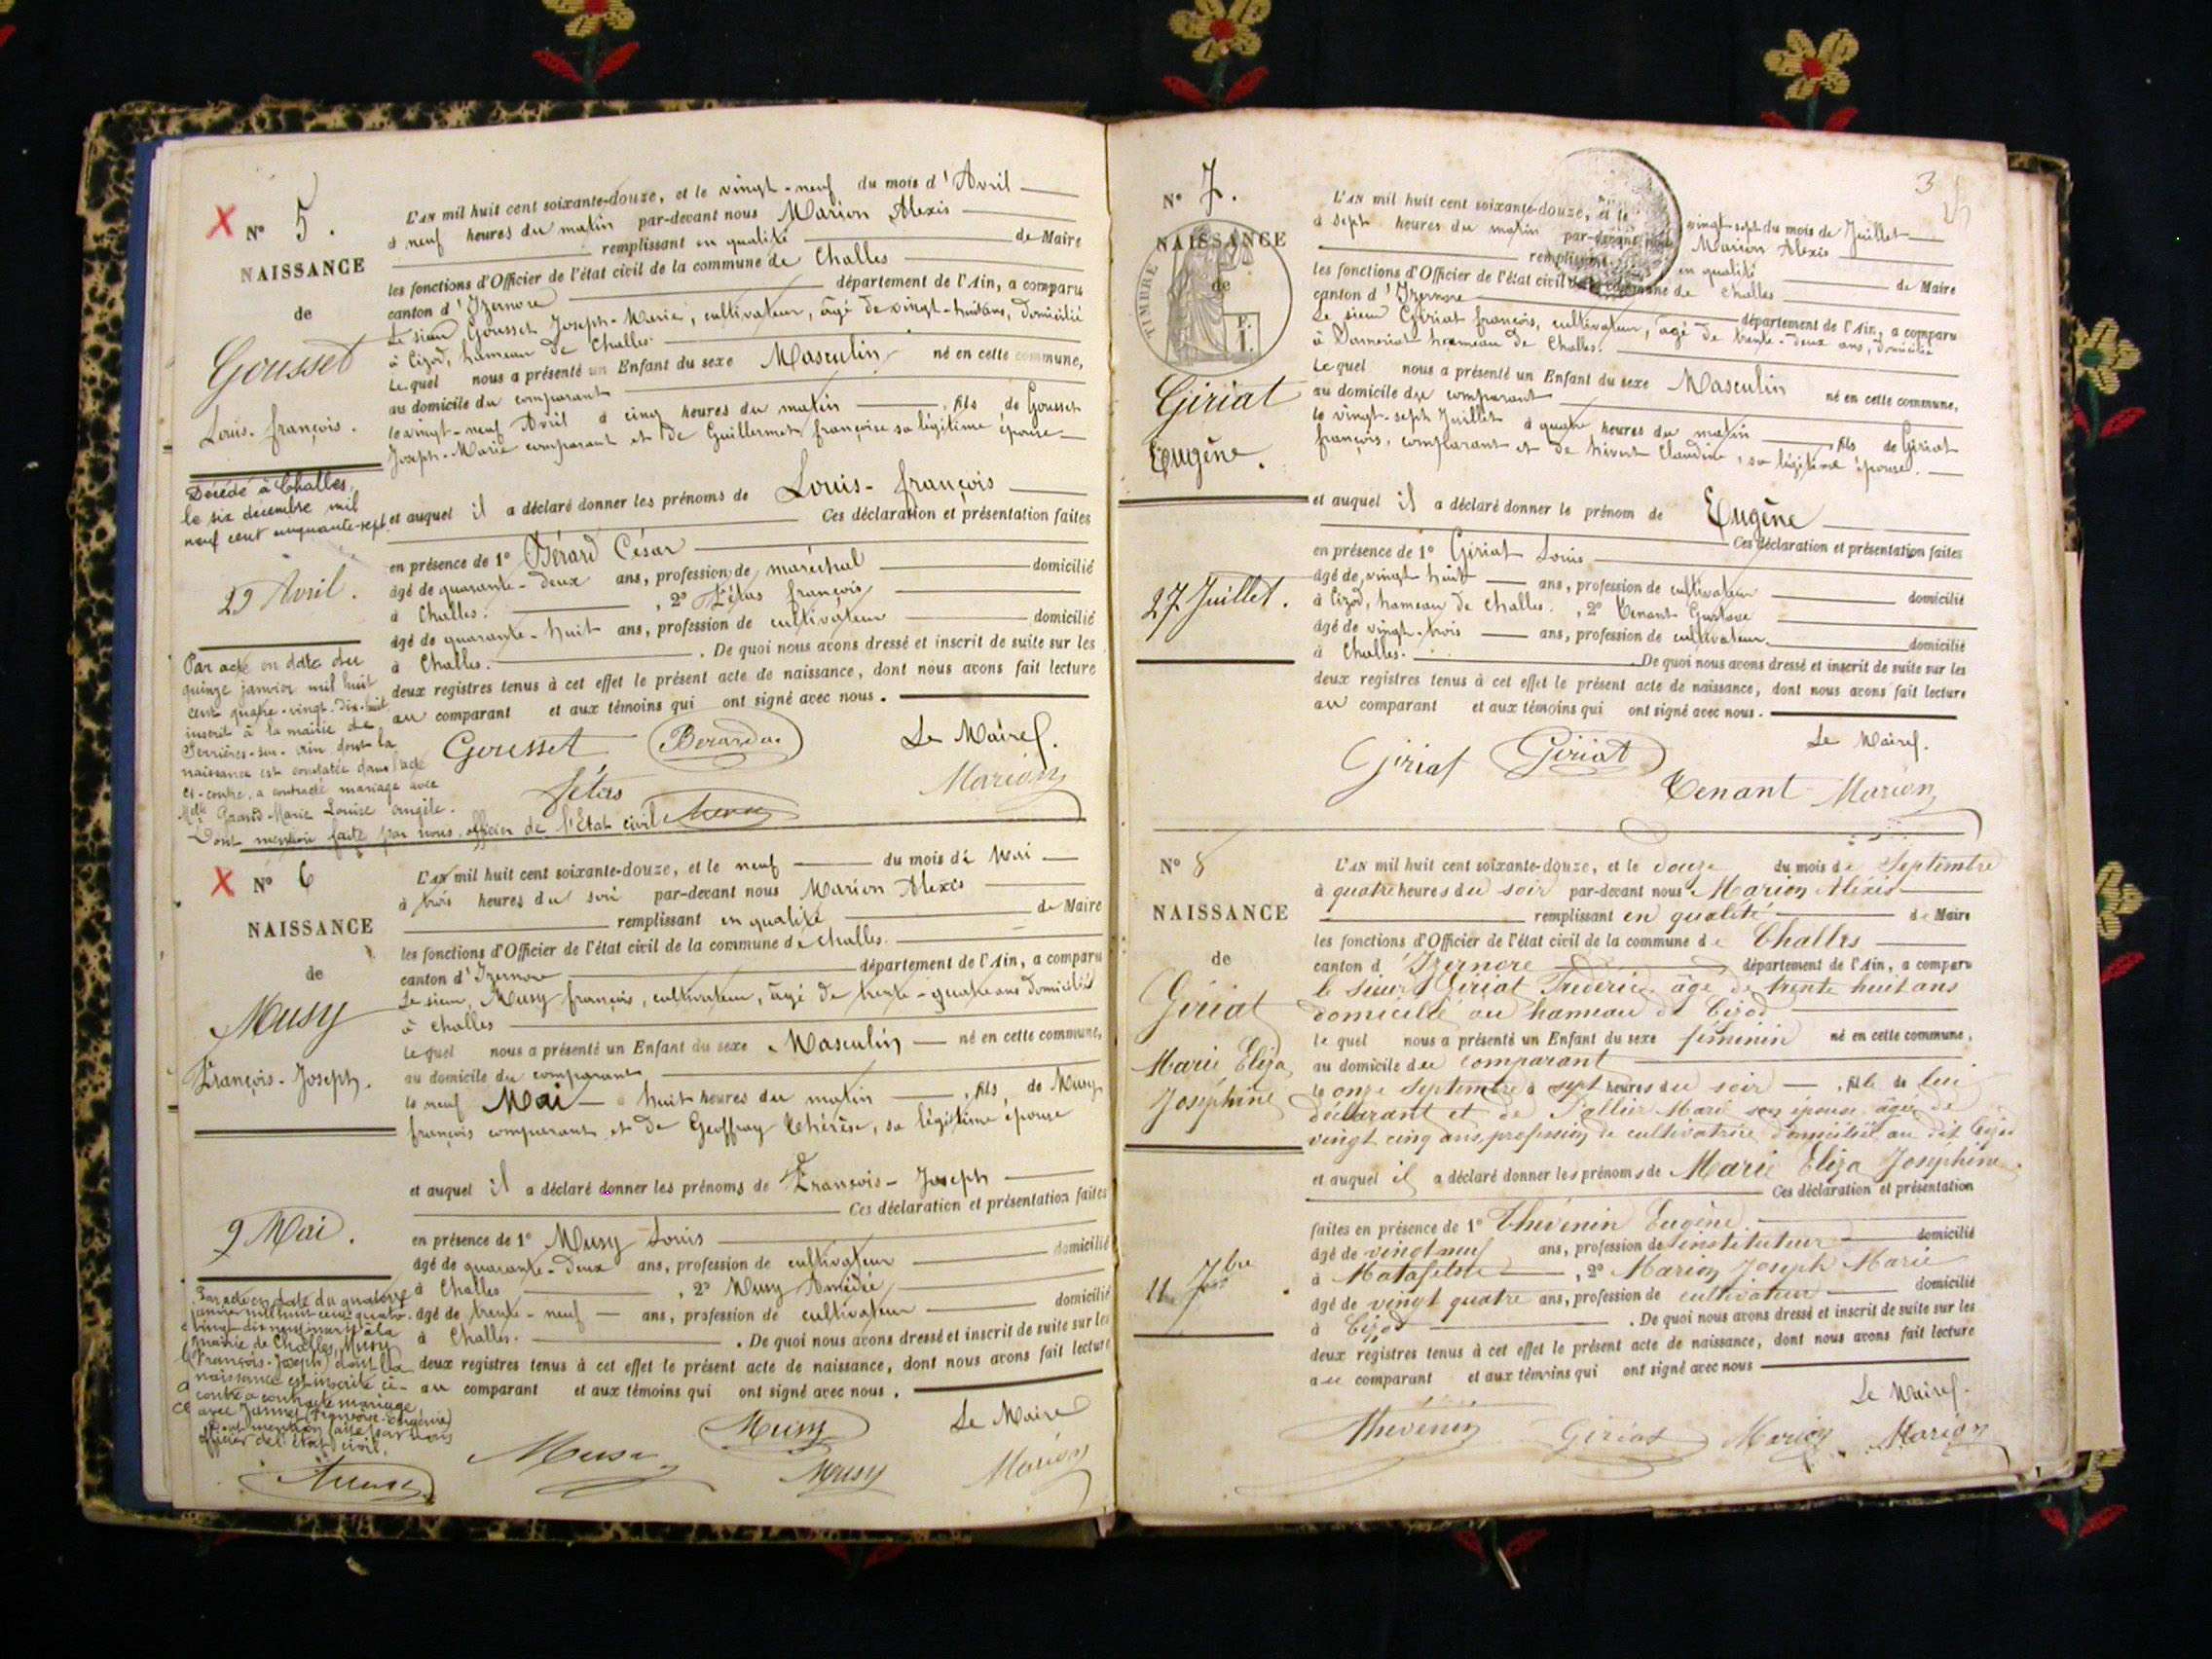 N° 5.
NAISSANCE
de
Gousset
Louis-françois.
Décédé à Challes,
le six decembre mil
neuf cent cinquante-sept
29 Avril.
Par acte en date du
quinze janvier mil huit
cent quatre-vingt-dix-huit
inscrit à la mairie de
Serrières-sur-Ain dont la
naissance est constatée dans l'acte
ci-contre, a contracté mariage avec
Melle Grand Marie Louise Angèle.
Dont mention faite par nous, officier de l'Etat civil
L'AN mil huit cent soixante-douze, et le vingt-neuf du mois d'Avril
à neuf heures du matin par-devant nous Marion Alexis
remplissant en qualité de Maire
les fonctions d'Officier de l'état civil de la commune de Challes
canton d'Izernore département de l'Ain, a comparu
Le sieur Gousset Joseph-Marie, cultivateur, âgé de vingt-huit ans, domicilié
à Cizod, hameau de Challes.
Lequel nous a présenté un Enfant du sexe Masculin né en cette commune,
au domicile du comparant
le vingt-neuf Avril à cinq heures du matin, fils de Gousset
Joseph-Marie comparant et de Guillermet françoise sa légitime épouse
et auquel il a déclaré donner les prénoms de Louis-françois
Ces déclaration et présentation faites
en présence de 1° Bérard César
âgé de quarante-deux ans, profession de maréchal domicilié
à Challes., 2° Fétas françois
âgé de quarante-huit ans, profession de cultivateur domicilié
à Challes. . De quoi nous avons dressé et inscrit de suite sur les
deux registres tenus à cet effet le présent acte de naissance, dont nous avons fait lecture
au comparant et aux témoins qui ont signé avec nous.
Gousset Berard Le Maire.
fétas Marion
N° 6
NAISSANCE
de
Musy
François-Joseph.
9 Mai.
Par acte en date du quatorze
janvier mil huit cent quatre-
vingt-dix-neuf inscrit à la
mairie de Challes, Musy
(François-Joseph) dont la
naissance est inscrite ci-
contre a contracté mariage
avec Jannet
Dont mention faite par nous
officier de l'état civil.
L'AN mil huit cent soixante-douze, et le neuf du mois de Mai
à trois heures du soir par-devant nous Marion Alexis
remplissant en qualité de Maire
les fonctions d'Officier de l'état civil de la commune de Challes.
canton d'Izernore département de l'Ain, a comparu
Le sieur Musy françois, cultivateur, âgé de trente-quatre ans domicilié
à Challes
Lequel nous a présenté un Enfant du sexe Masculin né en cette commune,
au domicile du comparant
le neuf Mai à huit heures du matin, fils de Musy
françois comparant et de Geoffray Thérèse, sa légitime épouse
et auquel il a déclaré donner les prénoms de François-Joseph
Ces déclaration et présentation faites
en présence de 1° Musy Louis
âgé de quarante-deux ans, profession de cultivateur domicilié
à Challes, 2° Musy Amédée
âgé de trente-neuf ans, profession de cultivateur domicilié
à Challes. . De quoi nous avons dressé et inscrit de suite sur les
deux registres tenus à cet effet le présent acte de naissance, dont nous avons fait lecture
au comparant et aux témoins qui ont signé avec nous.
Musy Le Maire
Musy Musy Marion
3
N° 7.
NAISSANCE
de
TIMBRE
Giriat
Eugène.
27 Juillet.
L'AN mil huit cent soixante-douze, et le vingt-sept du mois de Juillet
à sept heures du matin par-devant nous Marion Alexis
remplissant en qualité de Maire
les fonctions d'Officier de l'état civil de la commune de Challes
canton d'Izernore département de l'Ain, a comparu
Le sieur Giriat françois, cultivateur, âgé de trente-deux ans, domicilié
à hameau de Challes.
Lequel nous a présenté un Enfant du sexe Masculin né en cette commune,
au domicile du comparant
le vingt-sept Juillet à quatre heures du matin, fils de Giriat
françois, comparant et de Claudine, sa légitime épouse.
et auquel il a déclaré donner le prénom de Eugène
Ces déclaration et présentation faites
en présence de 1° Giriat Louis
âgé de vingt huit ans, profession de cultivateur domicilié
à Cizod, hameau de Challes., 2° Tenant Gustave
âgé de vingt-trois ans, profession de cultivateur domicilié
à Challes. . De quoi nous avons dressé et inscrit de suite sur les
deux registres tenus à cet effet le présent acte de naissance, dont nous avons fait lecture
au comparant et aux témoins qui ont signé avec nous.
Le Maire.
Giriat Giriat
Tenant Marion
N° 8
NAISSANCE
de
Giriat
Marie Eliza
Joséphine
11 7bre
L'AN mil huit cent soixante-douze, et le douze du mois de Septembre
à quatre heures du soir par-devant nous Marion Alexis
remplissant en qualité de Maire
les fonctions d'Officier de l'état civil de la commune de Challes
canton d'Izernore département de l'Ain, a comparu
le sieur Giriat Frédéric âgé de trente huit ans
domicilié au hameau de Cizod
lequel nous a présenté un Enfant du sexe féminin né en cette commune,
au domicile du comparant
le onze Septembre à sept heures du soir, fille de lui
déclarant et de Marie son épouse âgée de
vingt cinq ans, profession de cultivatrice domiciliée au dit Cizod
et auquel il a déclaré donner les prénoms de Marie Eliza Joséphine.
Ces déclaration et présentation
faites en présence de 1° Thévenin Eugène
âgé de vingt neuf ans, profession de instituteur domicilié
à Matafelon, 2° Marion Joseph Marie
âgé de vingt quatre ans, profession de cultivateur domicilié
à Cizod . De quoi nous avons dressé et inscrit de suite sur les
deux registres tenus à cet effet le présent acte de naissance, dont nous avons fait lecture
au comparant et aux témoins qui ont signé avec nous
Le Maire.
Thévenin Giriat Marion Marion